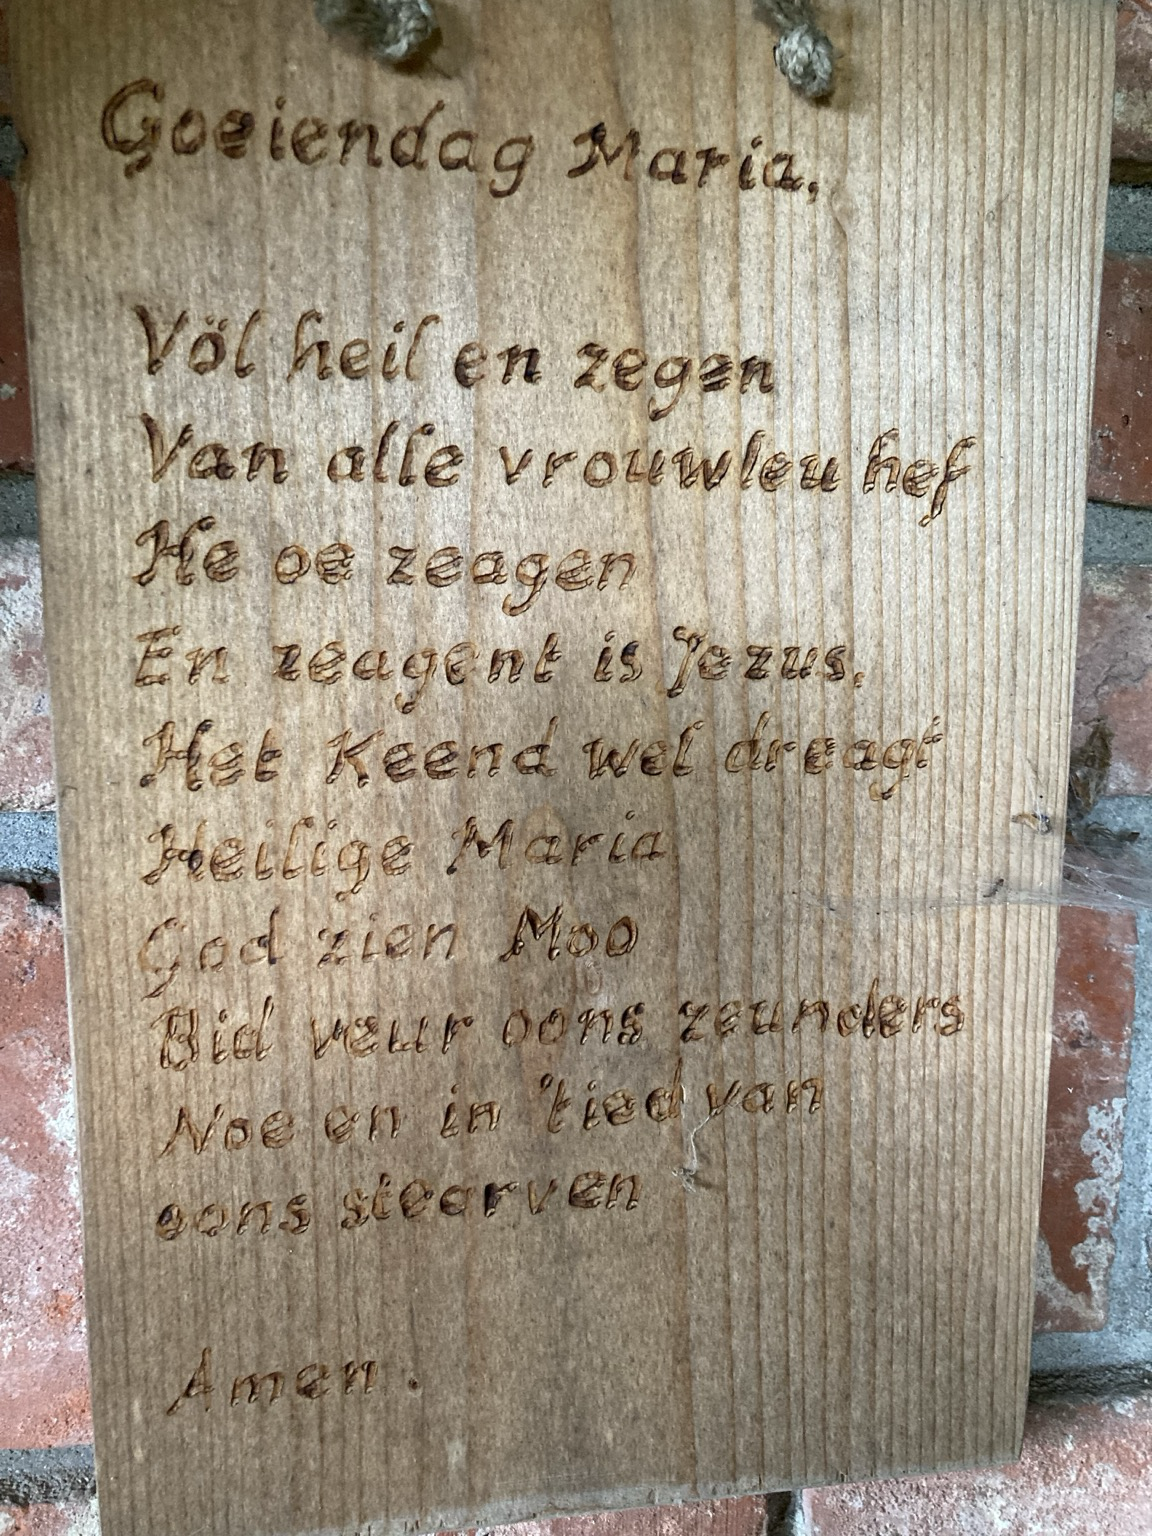 Goeiendag Maria,
Völ heil en zegen
Van alle vrouwleu hef
He oe zeagen
En zeagent is Jezus,
Het Keend wel dreagt
Heilige Maria
God zien Moo
Bid veur oons zeunders
Noe en in 'tied van
oons stearven
Amen.